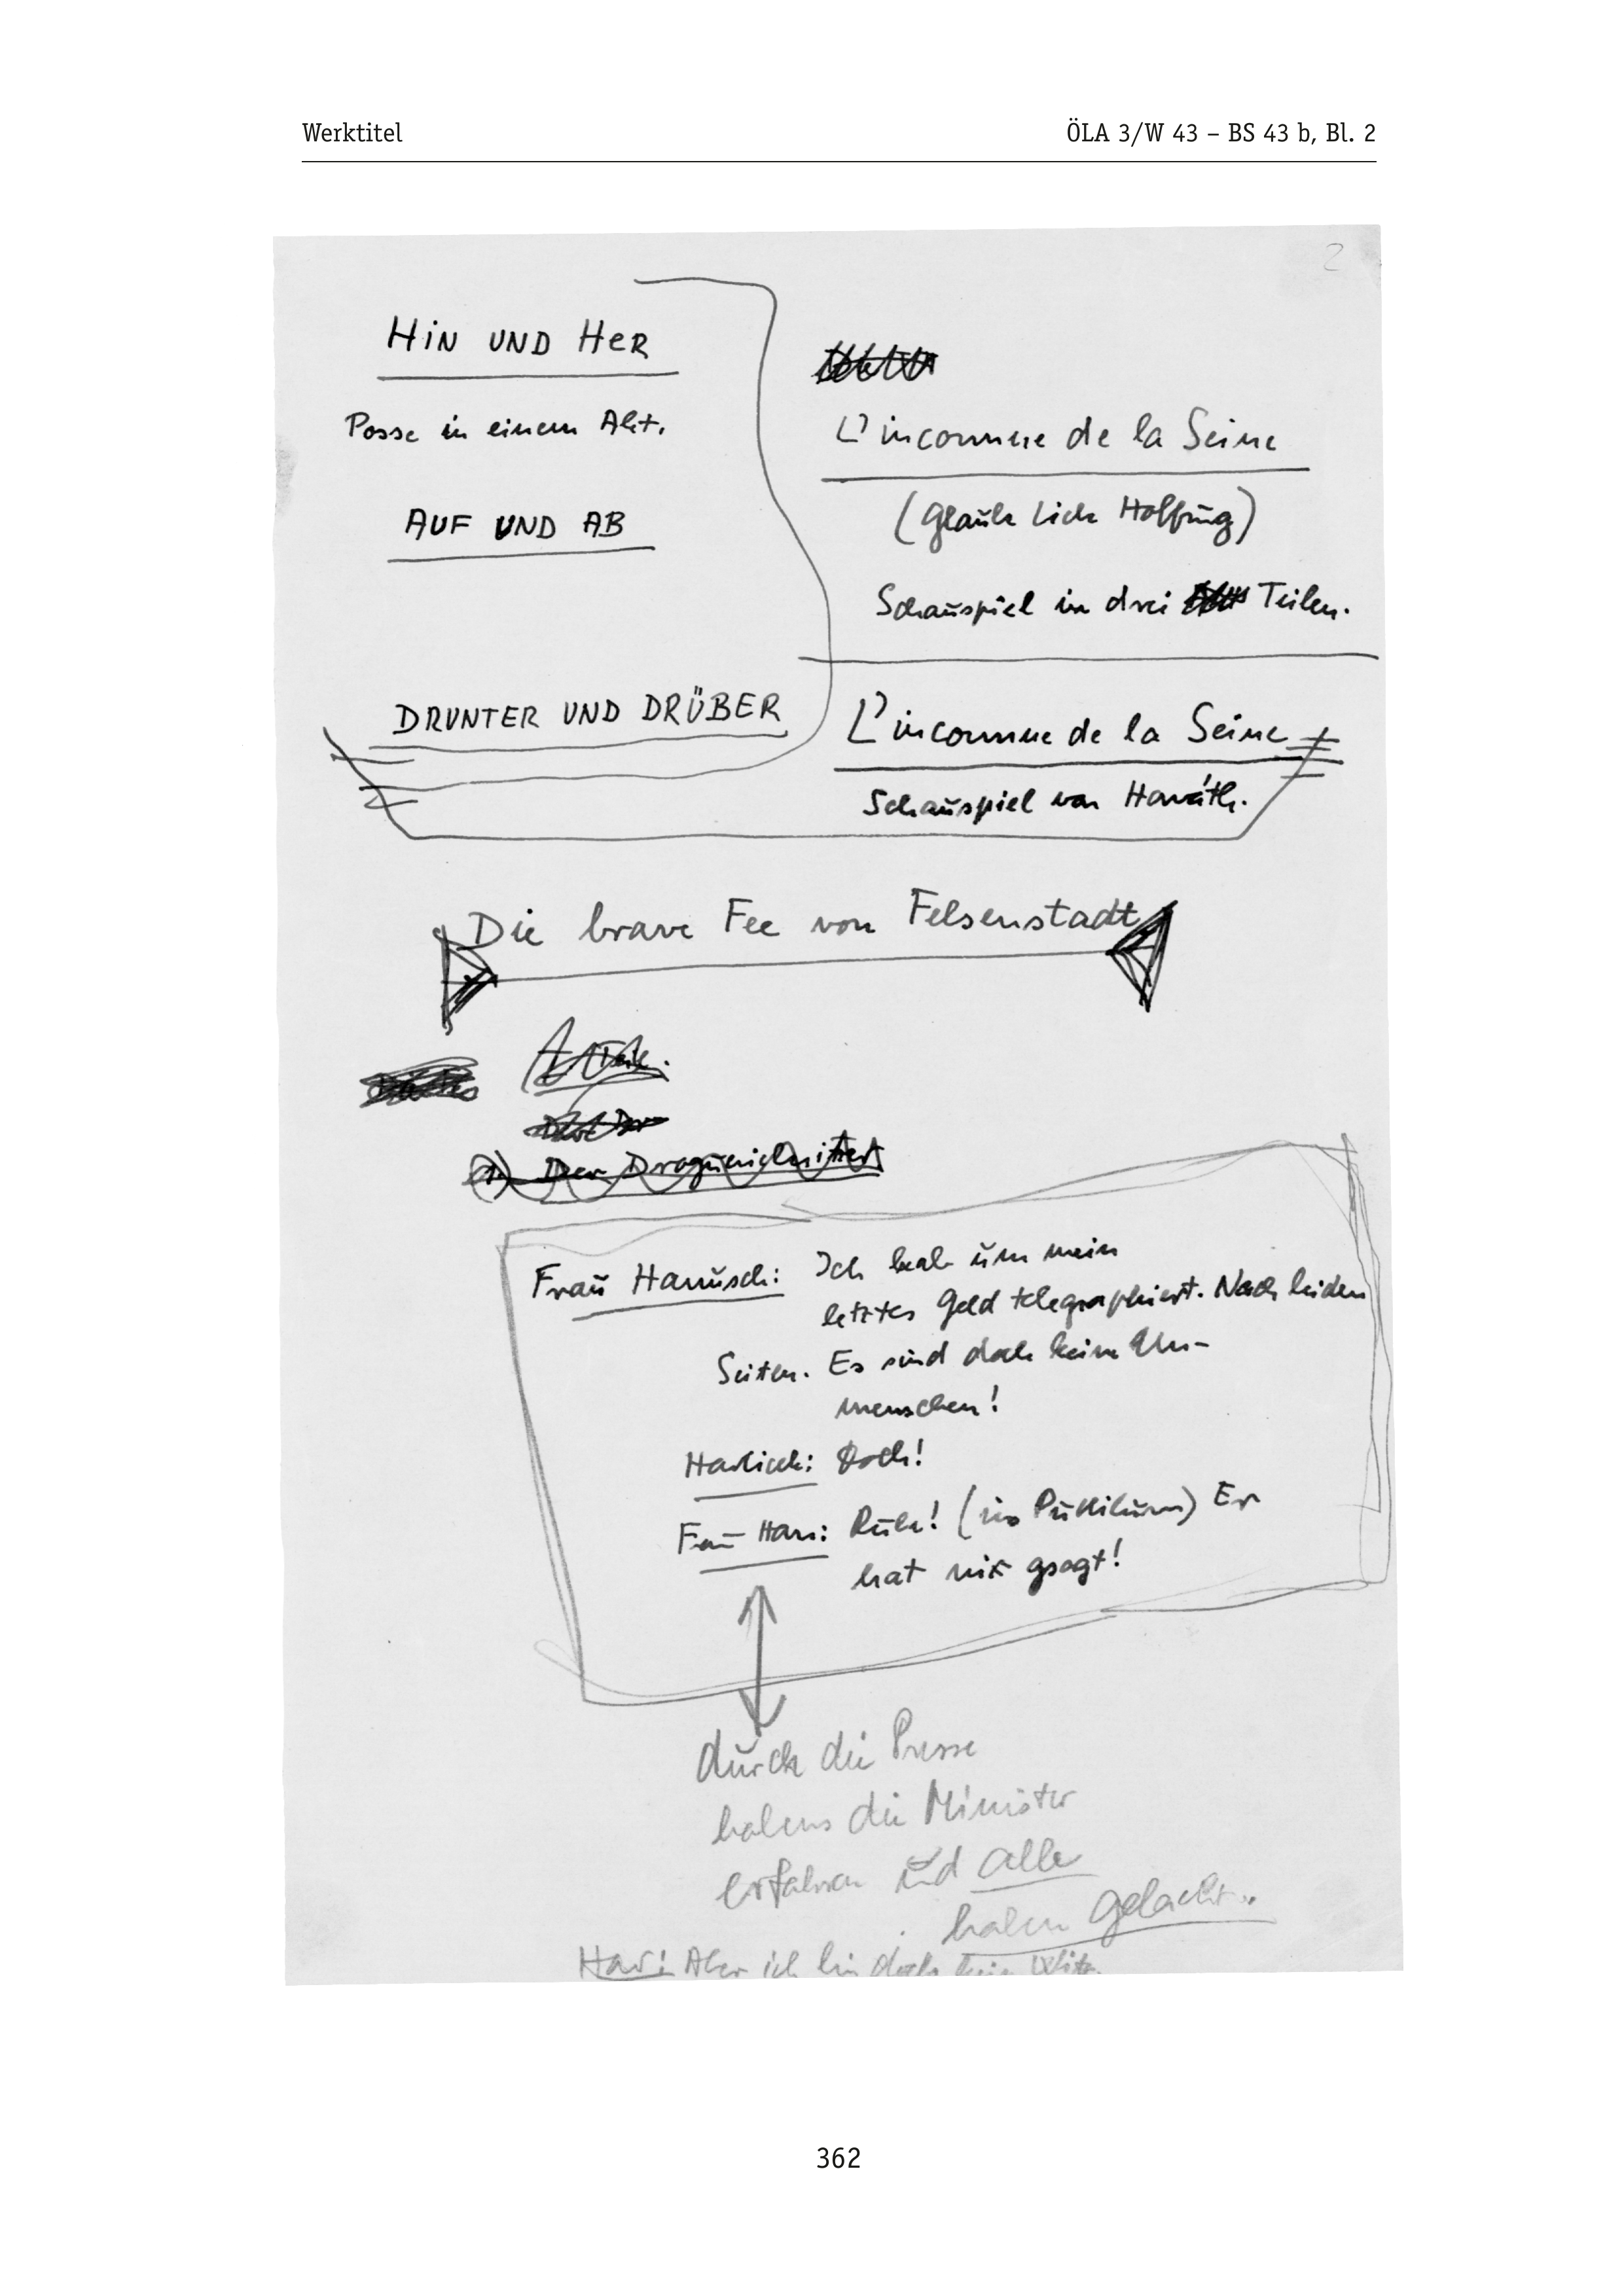 Werktitel
ÖLA 3/W 43 – BS 43 b, Bl. 2
2
HiN UND HeR
Posse in einem Akt.
AUF UND AB
DRUNTER UND DRÜBER
L'inconnue de la Seine
(Glaube Liebe Hoffnung)
Schauspiel in drei Teilen.
L'inconnue de la Seine
Schauspiel von Horváth.
Die brave Fee von Felsenstadt
Teil.
1.) Der
Frau Hanusch: Ich hab um mein
letztes Geld telegraphiert. Nach beiden
Seiten. Es sind doch keine Un-
menschen!
Havlicek: Doch!
Frau Han: Ruhe! (ins Publikum) Er
hat nix gsagt!
durch die Presse
habens die Minister
erfahren und alle
haben gelacht..
Hav: Aber ich bin doch kein Witz.
362